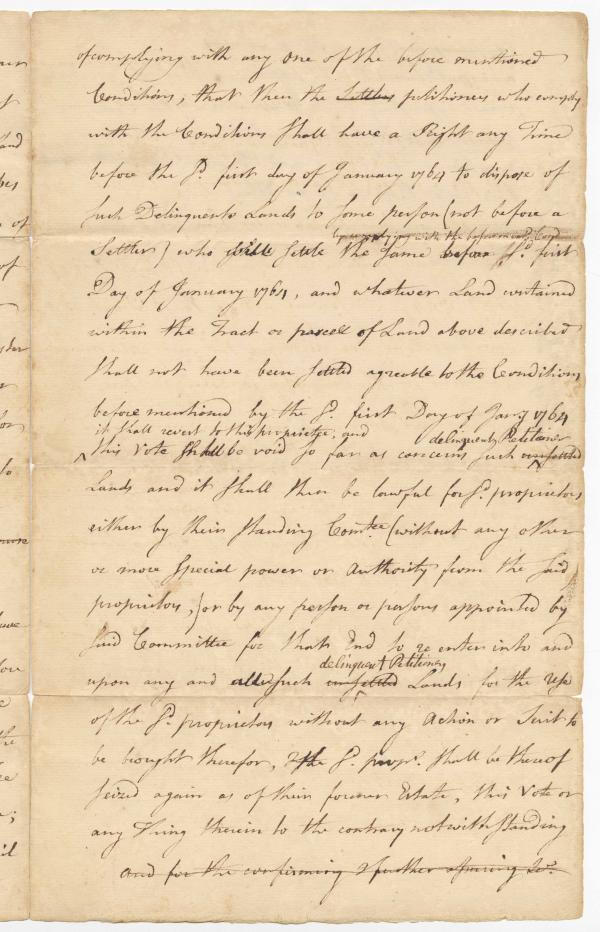 of complying with any one of the before mentioned
Conditions, that then the Settlers petitioners who comply
with the Conditions shall have a Right any Time
before the sd. first day of January 1764 to dispose of
such Delinquents Lands to some person (not before a
by complying with the beforementd. Conditions
Settler) who shall settle the same before sd. first
Day of January 1764, and whatever Land contained
within the Tract or parcell of Land above described
shall not have been settled agreable to the Conditions
before mentioned by the sd. first Day of Jany 1764
it shall revert to this propriety, and delinquent Petitioner
this Vote shall be void so far as concerns such unsettled
Lands and it shall then be lawful for sd. proprietors
either by their standing Comtee (without any other
or more special power or Authority from the said
proprietors,) or by any person or persons appointed by
said Committee for that End to re enter into and
delinquent Petitioners
upon any and all such unsettled Lands for the use
of the sd. proprietors without any Action or Suit to
be brought therefor, & the sd. proprs. shall be thereof
seized again as of their former Estate, this Vote or
any Thing therein to the contrary notwithstanding
and for the confirming & further assuring &c.